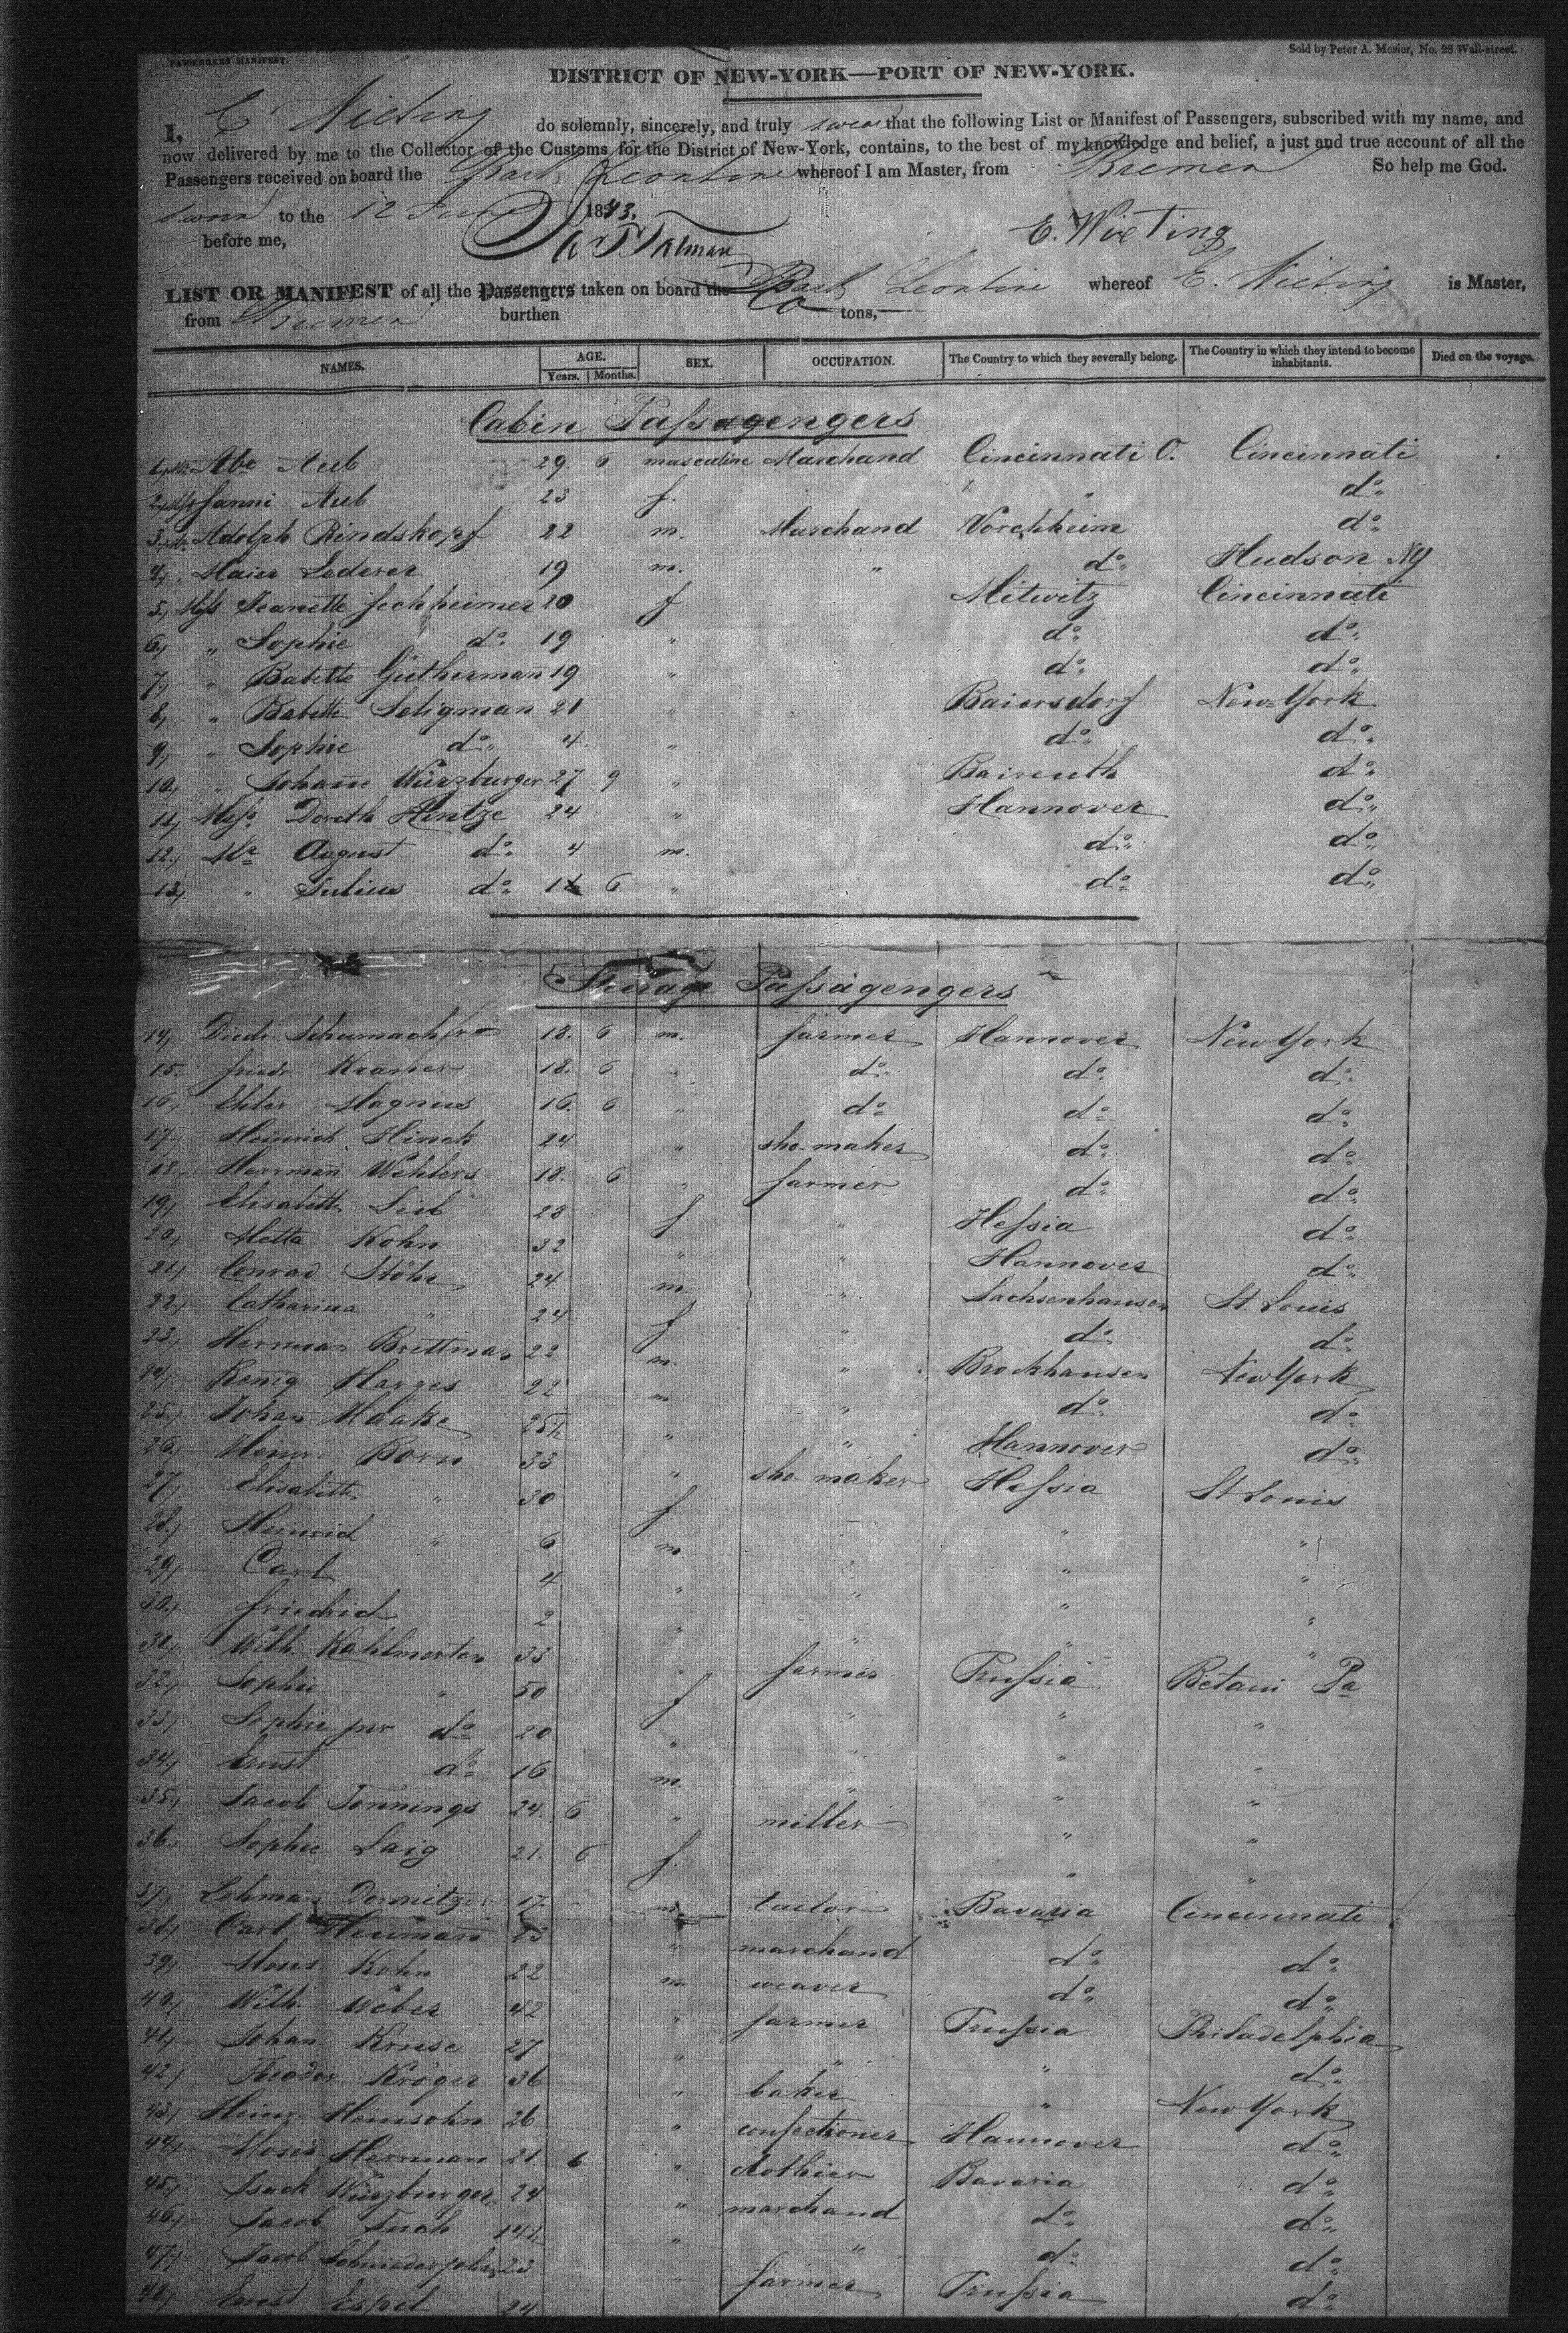 PASSENGERS' MANIFEST.
Sold by Peter A. Mesier, No. 28 Wall-street.
DISTRICT OF NEW-YORK—PORT OF NEW-YORK.
I, E Wieting do solemnly, sincerely, and truly swear that the following List or Manifest of Passengers, subscribed with my name, and
now delivered by me to the Collector of the Customs for the District of New-York, contains, to the best of my knowledge and belief, a just and true account of all the
Passengers received on board the Bark Leontine whereof I am Master, from Bremen So help me God.
Sworn to the 12 June 1843.
before me, E. Wieting
LIST OR MANIFEST of all the Passengers taken on board the Bark Leontine whereof E. Wieting is Master,
from Bremen burthen tons,
NAMES. AGE. Years. Months. SEX. OCCUPATION. The Country to which they severally belong. The Country in which they intend to become inhabitants. Died on the voyage.
Cabin Passagengers
1, Mr Abr Aub 29. 6 masculine Marchand Cincinnati O. Cincinnati
2, Mrs Fanni Aub 23 f. " " do
3, Mr Adolph Rindskopf 22 m. Marchand Vorchheim do
4, " Maier Lederer 19 m. " do Hudson NY
5, Miss Jeanette Fechheimer 20 f. Mitwitz Cincinnati
6, " Sophie do 19 " do do
7, " Babette Gütherman 19 " do do
8, " Babette Seligman 21 " Baiersdorf New-York
9, " Sophie do 4 " do do
10, " Johane Würzburger 27 9 " Baireuth do
11, Doreth Hintze 24 " Hannover do
12, Mr August do 4 m. do do
13, " Julius do 1 6 " do do
Steerage Passagengers
14, Diedr. Schumacher 18. 6 m. farmer Hannover New York
15, Friedr. Kramer 18. 6 " do do do
16, Ehler Magnus 16. 6 " do do do
17, Heinrich Hinck 24 " sho-maker do do
18, Herrman Wehlers 18. 6 " farmer do do
19, Elisabeth Leib 28 f. " Hessia do
20, Metta Kohn 32 " " Hannover do
21, Conrad Stöhr 24 m. " Sachsenhausen St. Louis
22, Catharina " 24 f " do do
23, Herrman Brettman 22 m. " Brockhausen New York
24, Konig Harges 22 m " do do
25, Johan Haake 25½ " " Hannover do
26, Heinr. Born 33 " sho-maker Hessia St Louis
27, Elisabeth " 30 f " "
28, Heinrich " 6 m. " " "
29, Carl 4 " " " "
30, Friedrich 2 " " " "
31, Wilh. Kahlmerten 33 " farmer Prussia Betani Pa
32, Sophie " 50 f " " "
33, Sophie jnr do 20 " " " "
34, Ernst do 16 m. " " "
35, Jacob Tonnings 24. 6 " miller " "
36, Sophie Laig 21. 6 f. " "
37, Lehman Dormitzer 17. m tailor Bavaria Cincinnati
38, Carl Heuman 23 " marchand do do
39, Moses Kohn 22 m. weaver do do
40, Wilh. Weber 42 " farmer Prussia Philadelphia
41, Johan Kruse 27 " " " do
42, Theodor Kröger 36 " baker " New York
43, Heinr. Heinsohn 26 " confectioner Hannover do
44, Moses Herrman 21. 6 " clothier Bavaria do
45, Isack Würzburger 24 " marchand do do
46, Jacob Tuch 14½ " " do do
47, Jacob Schniederjohn 23 " farmer Prussia do
48, Ernst Espel 24 do